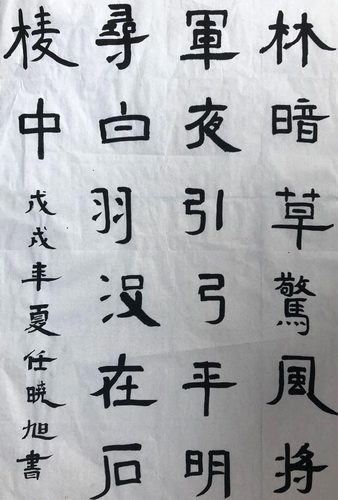 林暗草驚風將
軍夜引弓平明
尋白羽沒在石
棱中
戊戌年夏任曉旭書